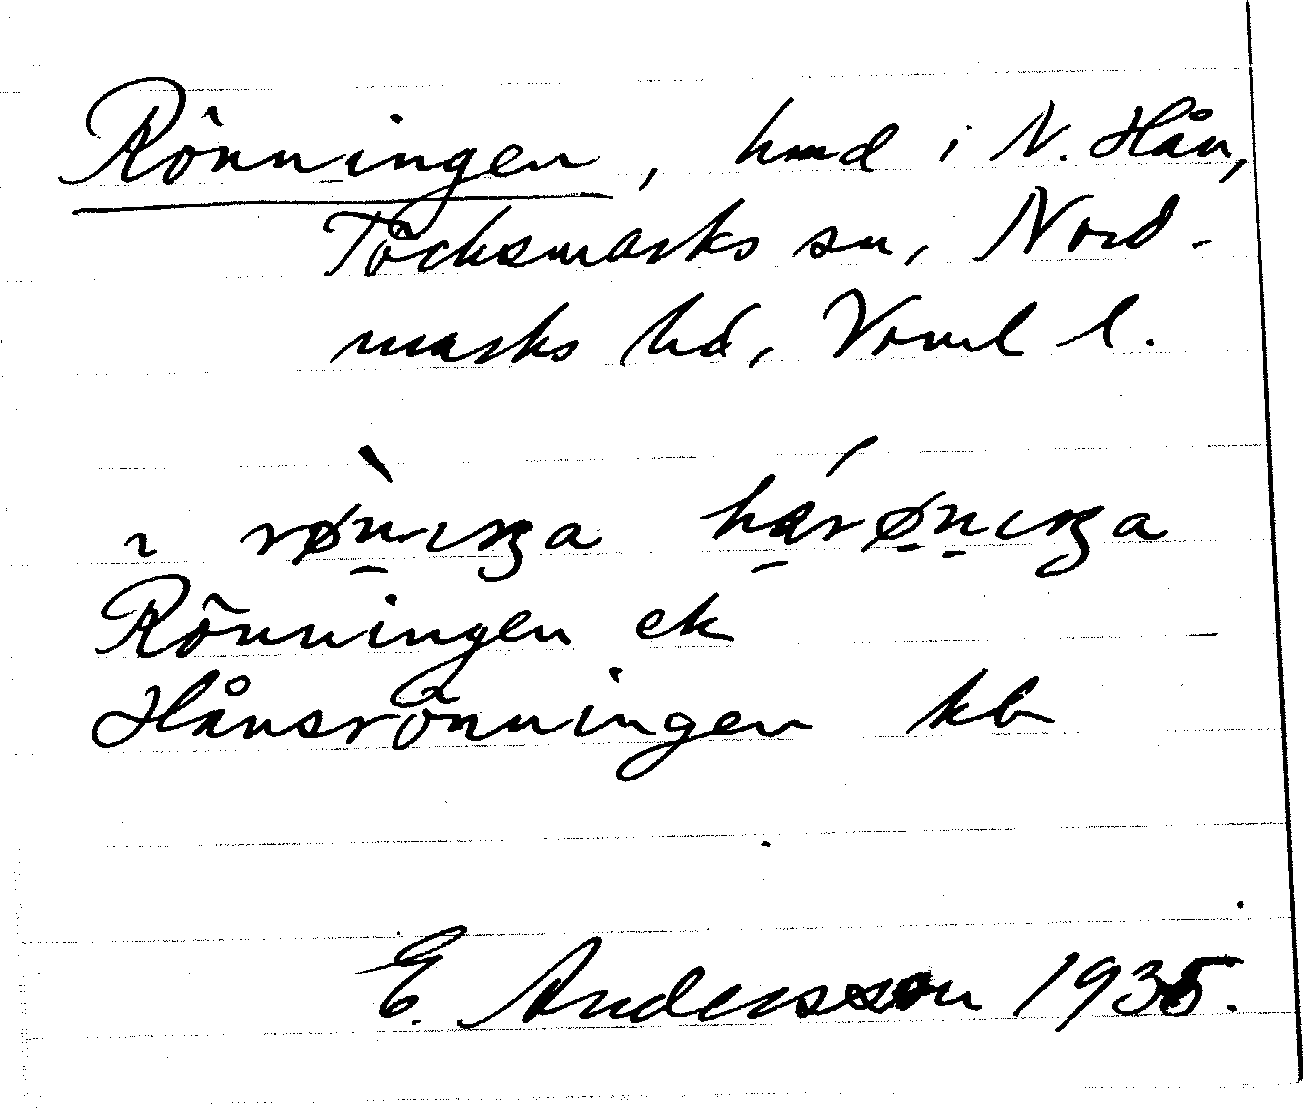 Rönningen, hmd i N. Hån,
Töcksmarks sn, Nord-
marks hd, Värml l.
ı rø̀nıŋa hárønıŋa
Rönningen ek
Hånsrönningen kb
E. Andersson 1935.